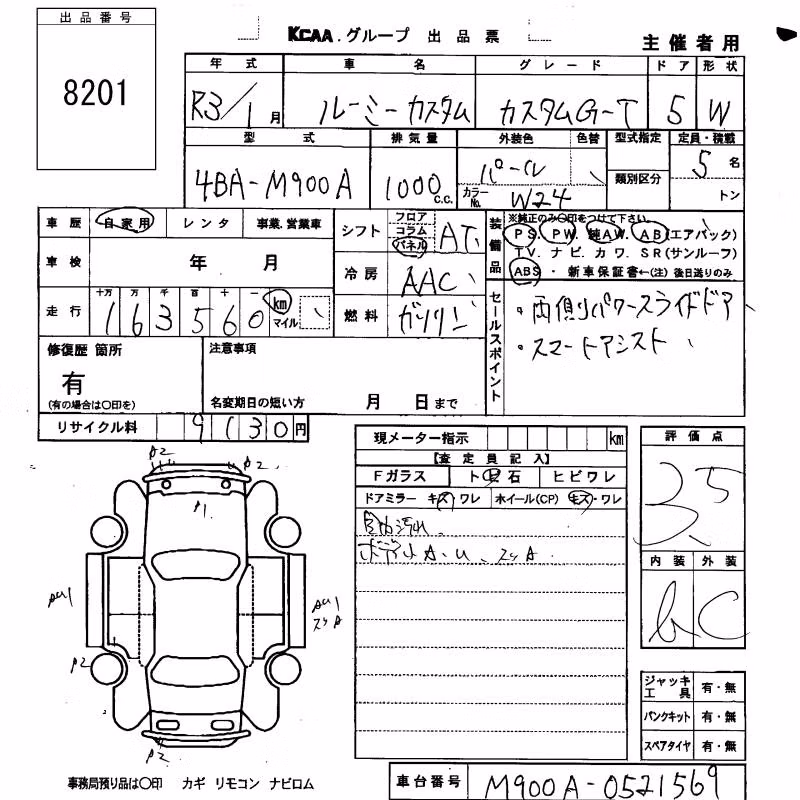 出品番号
8201
KCAA.グループ 出品票
主催者用
年式 車名 グレード ドア 形状
R3/1月 ルーミーカスタム カスタムG-T 5 W
型式 排気量 外装色 色替 型式指定 定員・積載
4BA-M900A 1000c.c. パール 5名
カラーNo. W24 類別区分 トン
車歴 自家用 レンタ 事業.営業車
シフト フロア コラム パネル AT
装備品 ※純正のみ〇印をつけて下さい。
PS. PW. 純AW. AB(エアバック)
TV. ナビ. カワ. SR(サンルーフ)
ABS ・ 新車保証書←(注) 後日送りのみ
車検 年 月
冷房 AAC
走行 十万 万 千 百 十 一
163560 km マイル
燃料 ガソリン
セールスポイント
・両側パワースライドドア
・スマートアシスト
修復歴 箇所
有
(有の場合は〇印を)
注意事項
名変期日の短い方 月 日まで
リサイクル料 9130円
現メーター指示 km
【査定員記入】
Fガラス ト石 ヒビワレ
ドアミラー キズ ワレ ホイール(CP) キズ・ワレ
ボディ小A.U、スリA
評価点
3.5
内装 外装
b C
A2 A2
A1
AU1
AU1
スリA
A2
A2
ジャッキ工具 有・無
パンクキット 有・無
スペアタイヤ 有・無
事務局預り品は〇印 カギ リモコン ナビロム
車台番号 M900A-0521569